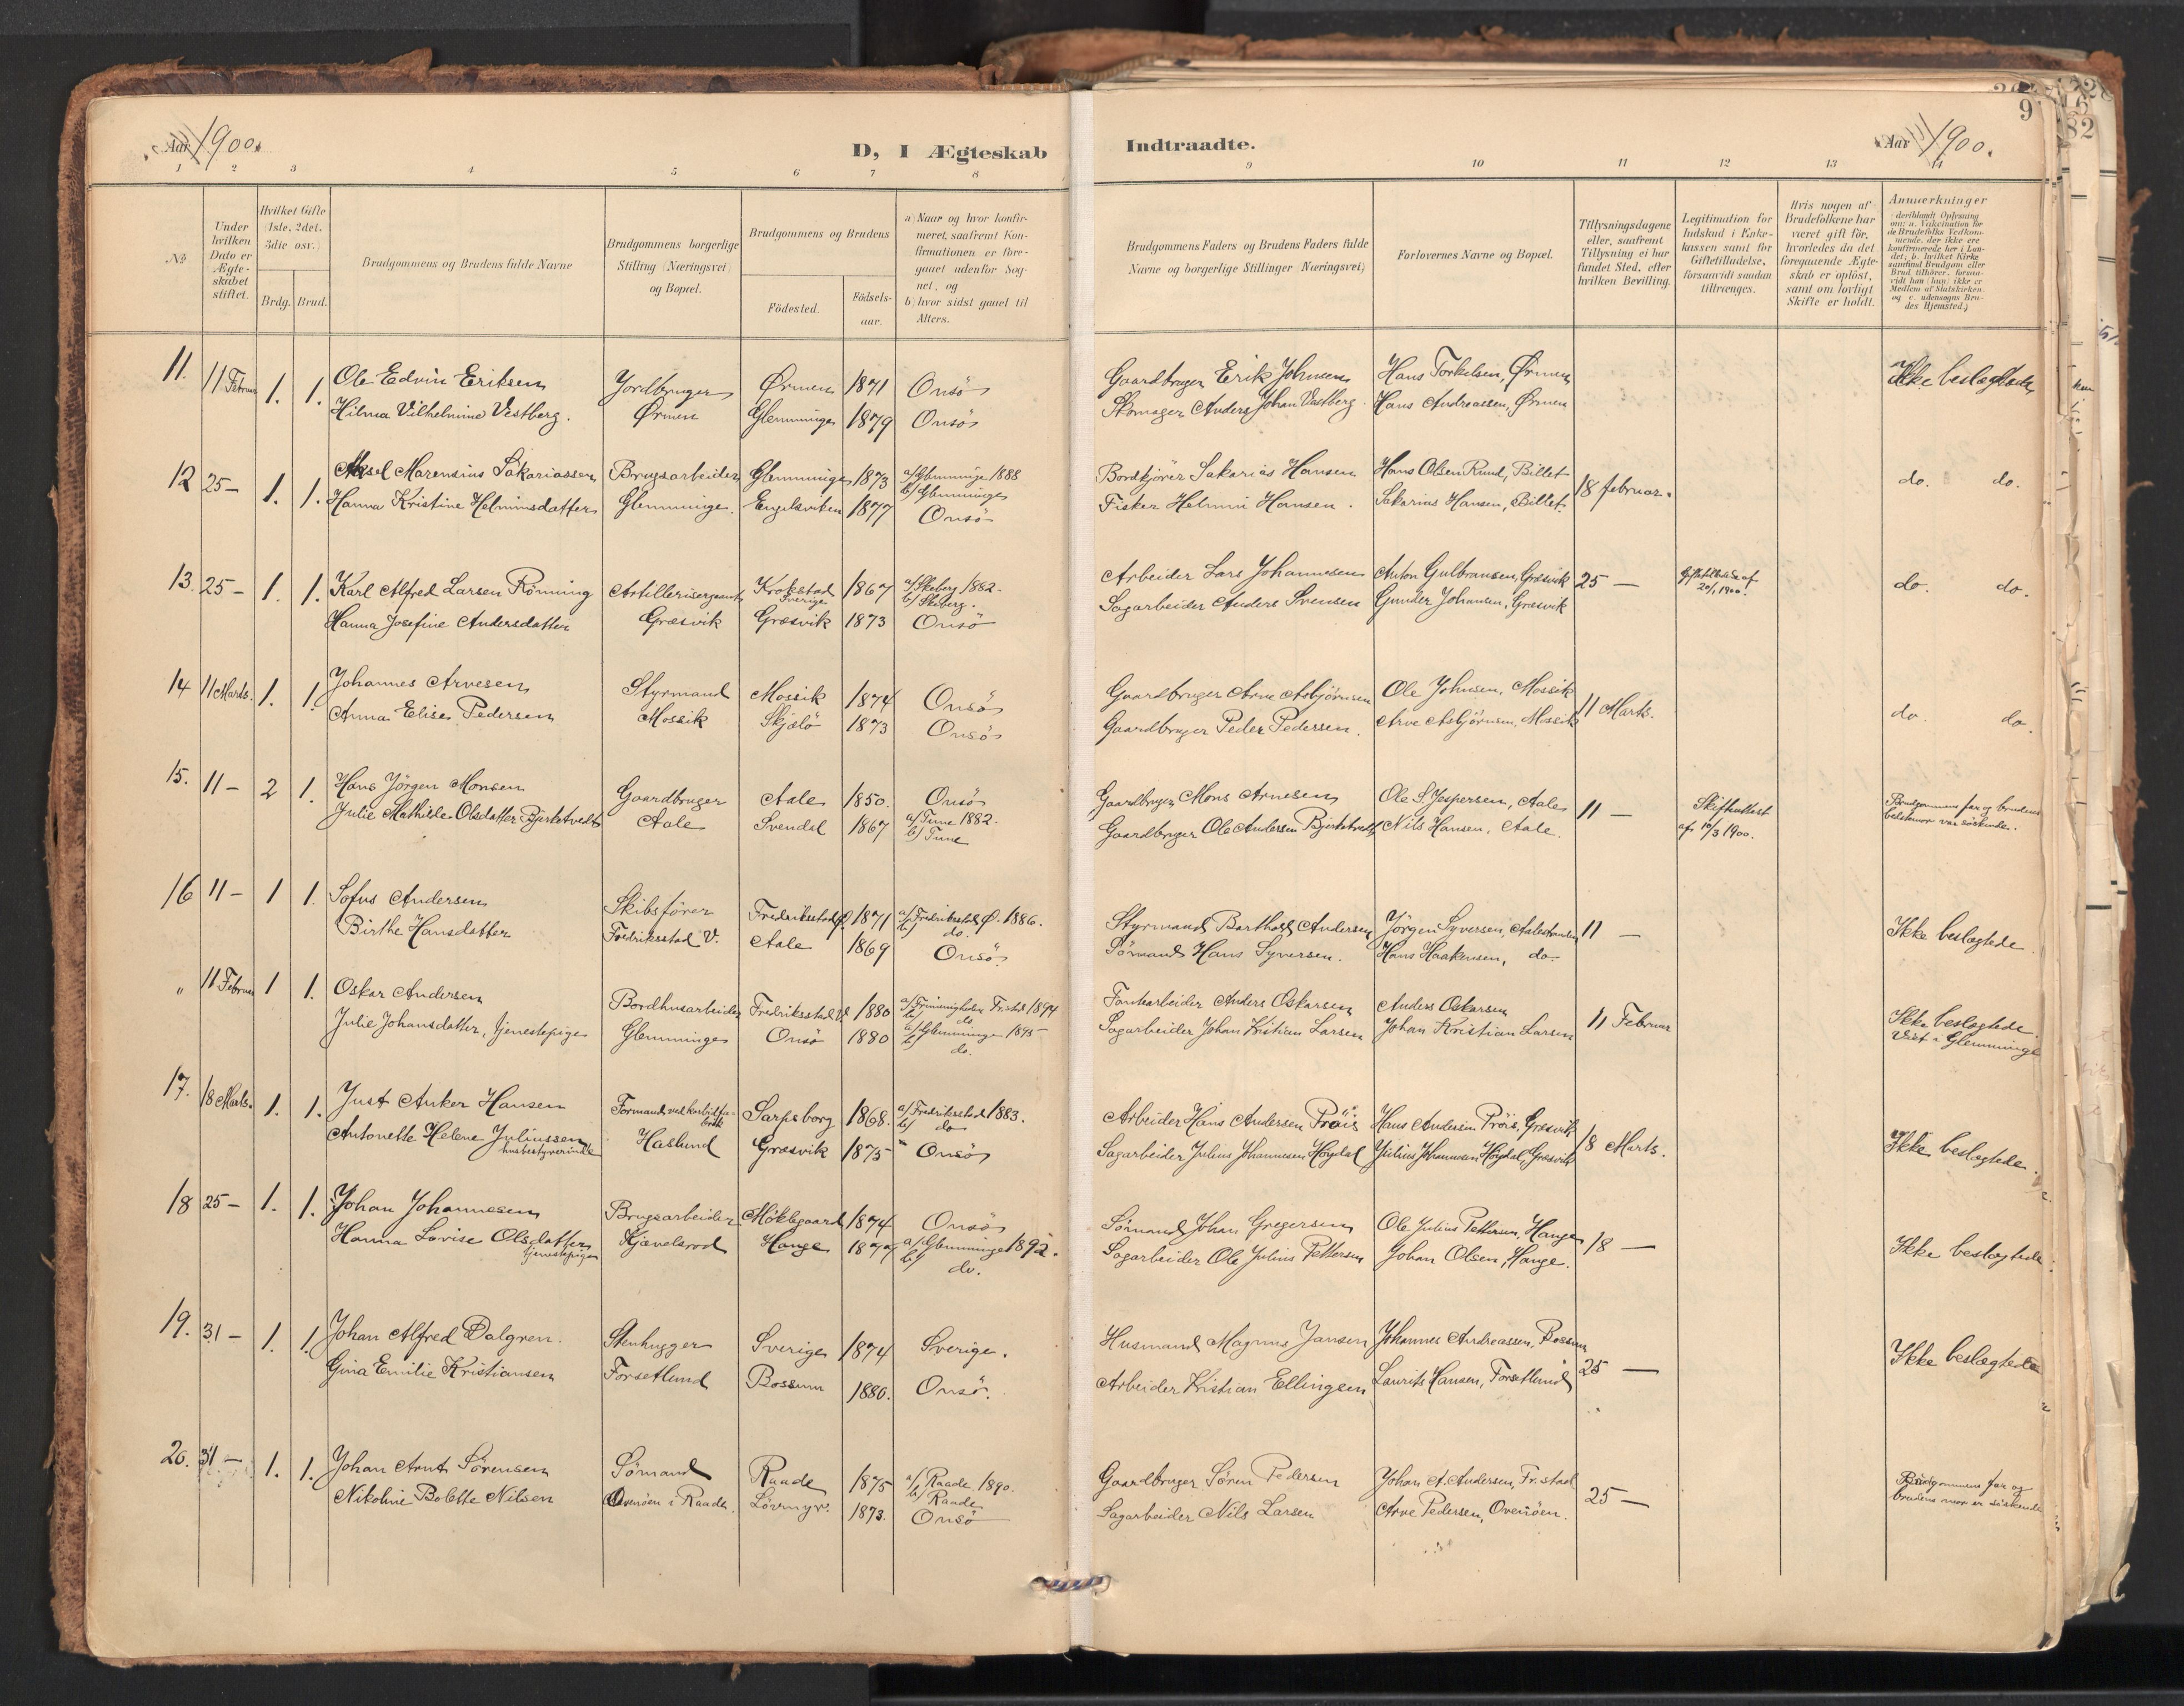 Aar 1900.
D, I Ægteskab
Indtraadte.
Aar 1900.
9
1 2 3 4 5 6 7 8
9 10 11 12 13 14
No
Under hvilken Dato er Ægteskabet stiftet.
Hvilket Gifte (1ste, 2det, 3die osv.)
Brdg. Brud.
Brudgommens og Brudens fulde Navne
Brudgommens borgerlige Stilling (Næringsvei) og Bopæl.
Brudgommens og Brudens
Födested.
Födsels-aar.
a) Naar og hvor konfirmeret, saafremt Konfirmationen er foregaaet udenfor Sognet, og
b) hvor sidst gaaet til Alters.
Brudgommens Faders og Brudens Faders fulde Navne og borgerlige Stillinger (Næringsvei)
Forlovernes Navne og Bopæl.
Tillysningsdagene eller, saafremt Tillysning ei har fundet Sted, efter hvilken Bevilling.
Legitimation for Indskud i Enkekassen samt for Giftetilladelse, forsaavidt saadan tiltrænges.
Hvis nogen af Brudefolkene har været gift för, hvorledes da det foregaaende Ægteskab er oplöst, samt om lovligt Skifte er holdt.
Anmærkninger
(deriblandt Oplysning om: a. Vakcination for de Brudefolks Vedkommende, der ikke ere konfirmerede her i Landet; b. hvilket Kirkesamfund Brudgom eller Brud tilhörer, forsaavidt han (hun) ikke er Medlem af Statskirken, og c. udensogns Brudes Hjemsted.)
11. 11 Februar 1. 1. Ole Edvin Eriksen Jordbruger Örmen 1871 Onsö Gaardbruger Erik Johnsen Hans Torkelsen, Örmen Ikke beslægtede
Hilma Vilhelmine Vestberg. Örmen Glemminge 1879 Onsö Skomager Anders Johan Vestberg. Hans Andreassen, Örmen
12 25- 1. 1. Aksel Marensius Sakariassen Brugsarbeider Glemminge 1873 a/Glemminge 1888 b/Glemminge Bordkjörer Sakarias Hansen Hans Olsen Rund, Billet 18 februar. do. do.
Hanna Kristine Helminsdatter Glemminge. Engelsviken 1877 Onsö Fisker Helmin Hansen. Sakarias Hansen, Billet.
13. 25- 1. 1. Karl Alfred Larsen Rönning Artillerisergeant Krokstad Sverige 1867 a/Skeberg 1882. b/Skeberg. Arbeider Lars Johannesen Anton Gulbransen, Græsvik 25 — Giftetilladelse af 20/1 1900. do. do.
Hanna Josefine Andersdatter Græsvik Græsvik 1873 Onsö Sagarbeider Anders Svensen Gunder Johansen, Græsvik
14 11 Marts. 1. 1. Johannes Arvesen Styrmand Mossik 1874 Onsö Gaardbruger Arve Asbjörnsen Ole Johnsen, Mossik 11 Marts. do. do
Anna Elise Pedersen Mossik Skjælö 1873 Onsö Gaardbruger Peder Pedersen. Arve Asbjörnsen, Mossik
15. 11- 2 1. Hans Jörgen Monsen Gaardbruger Aale 1850. Onsö Gaardbruger Mons Arnesen Ole S. Jespersen, Aale 11 — Skifteattest af 10/3 1900. Brudgommens far og brudens bestemor var söskende.
Julie Mathilde Olsdatter Bjerketvedt Aale Svendal 1867 a/Tune 1882. b/Tune Gaardbruger Ole Andersen Bjerketvedt Nils Hansen, Aale.
16 11- 1 1. Sofus Andersen Skibsförer Fredriksstad Ø. 1871 a/Fredriksstad Ø. 1886. b/ do. Styrmand Barthold Andersen Jörgen Syversen, Aalestranden 11 — Ikke beslægtede
Birthe Hansdatter Fredriksstad V. Aale 1869 Onsö. Sömand Hans Syversen. Hans Haakensen, do.
" 11 Februar 1 1. Oskar Andersen Bordhusarbeider Fredriksstad V. 1880 a/Frimenigheden Fr.stad 1894 b/ do Tomtearbeider Anders Oskarsen Anders Oskarsen 11 Februar Ikke beslægtede.
Julie Johansdatter, tjenestepige Glemminge Onsö 1880 a/Glemminge 1895 b/ do. Sagarbeider Johan Kristian Larsen Johan Kristian Larsen Viet i Glemminge
17. 18 Marts. 1. 1. Just Anker Hansen Formand ved karbidfabrik Sarpsborg 1868. a/Fredriksstad 1883. b/ do Arbeider Hans Andersen Pröis Hans Andersen Pröis, Græsvik 18 Marts. Ikke beslægtede.
Antonette Helene Juliussen husbestyrerinde Haslund Græsvik 1875 Onsö Sagarbeider Julius Johannesen Höydal Julius Johannesen Höydal, Græsvik
18 25- 1. 1. Johan Johannesen Brugsarbeider Möklegaard 1874 Onsö Sömand Johan Gregersen Ole Julius Pettersen, Hauge 18 — Ikke beslægtede.
Hanna Lovise Olsdatter tjenestepige Kjævelsrod Hauge 1877 a/Glemminge 1892. b/ do. Sagarbeider Ole Julius Pettersen Johan Olsen, Hauge.
19. 31- 1. 1. Johan Alfred Dalgren. Stenhugger Sverige 1874 Sverige. Husmand Magnus Jansen Johannes Andreassen, Bossum 25 — Ikke beslægtede
Gina Emilie Kristiansen Forsetlund Bossum 1880. Onsö. Arbeider Kristian Ellingsen Laurits Hansen, Forsetlund
20. 31- 1. 1. Johan Arnt Sörensen Sömand Raade 1875 a/Raade, 1890. b/Raade Gaardbruger Sören Pedersen Johan A. Andersen, Fr.stad 25 — Brudgommens far og brudens mor er söskende
Nikoline Bolette Nilsen Ovenöen i Raade. Lövmyr. 1873. Onsö Sagarbeider Nils Larsen Arve Pedersen, Ovenöen.